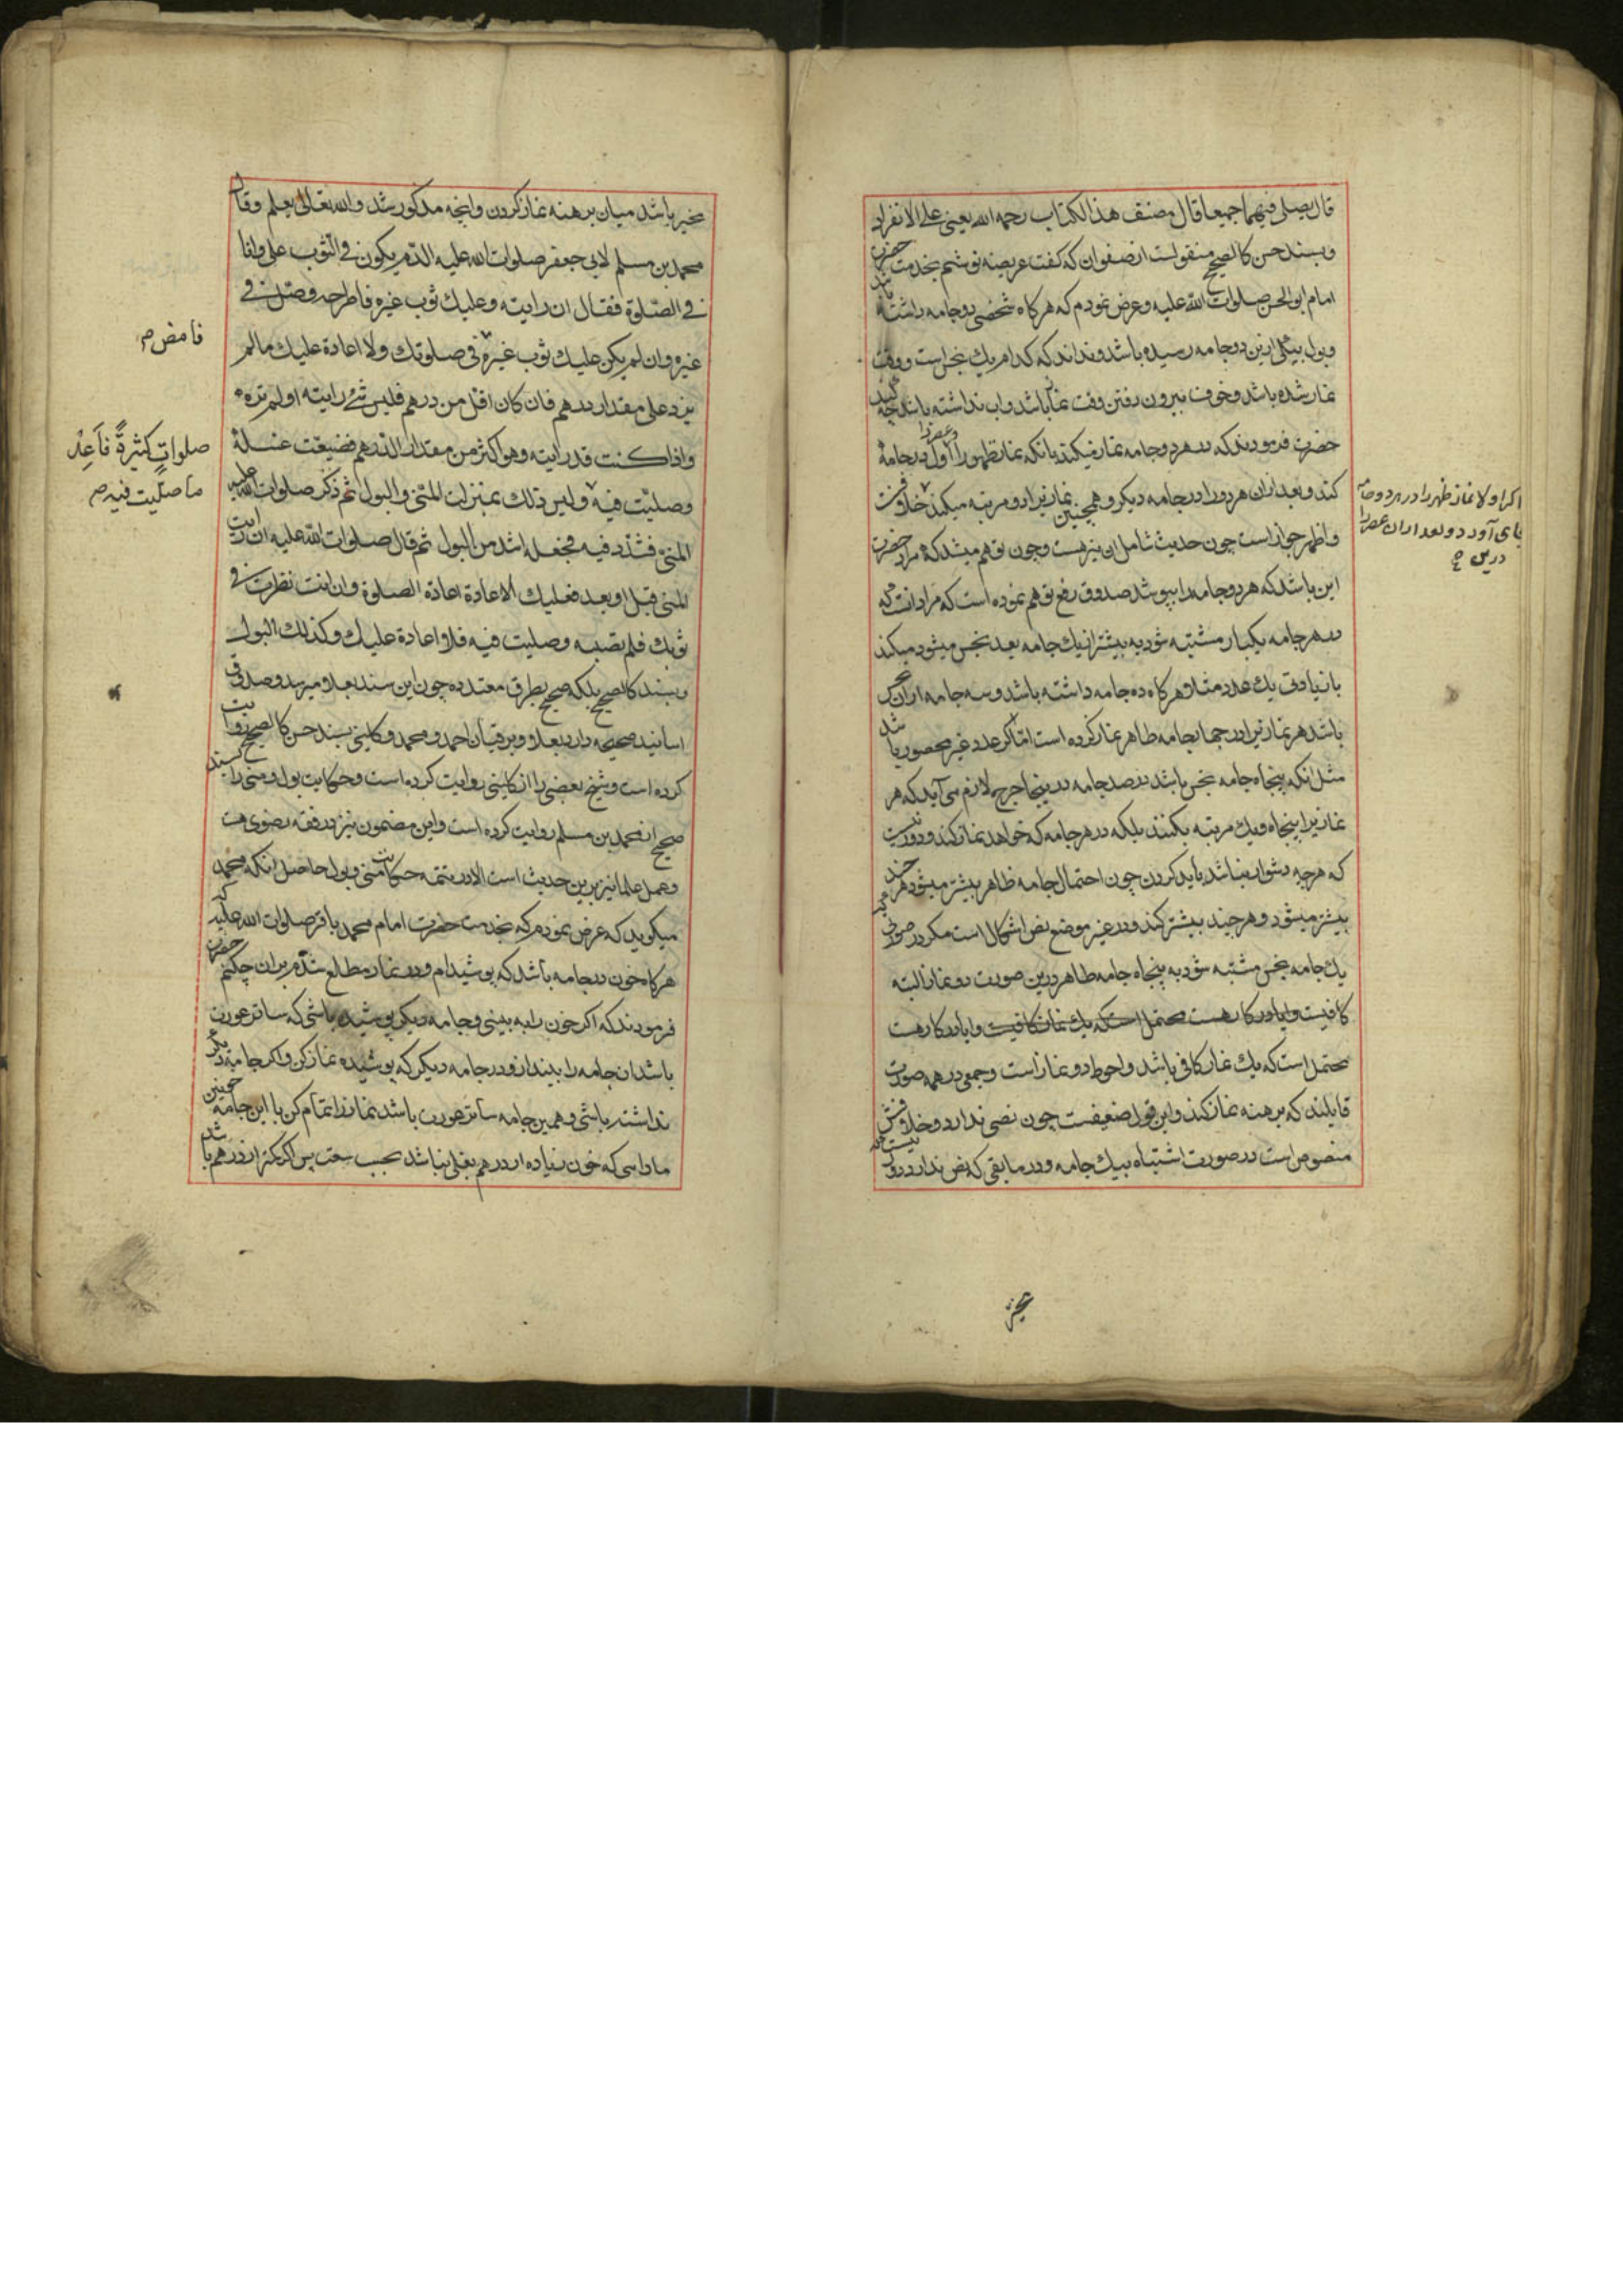 قال يصلي فيهما جميعا قال مصنف هذا الكتاب رحمه الله يعني علي الانفراد
وبسند حسن كالصحيح منقولست از صفوان كه كفت عريضه نوشتم بخدمت حضرت
امام ابو الحسن صلوات الله عليه وعرض نمودم كه هركاه شخصي دو جامه داشته باشد
وبول بيكي ازين دو جامه رسيده باشد ونداند كه كدام يك نجس است ووقت
نماز شده باشد وخوف بيرون رفتن وقت نماز باشد واب نداشته باشد چه كند
حضرت فرمودند كه در هر دو جامه نماز ميكند بانكه نماز ظهر را وعصر را اول در جامۀ
كند وبعد ازان هر دو را در جامه ديكر وهمچنين نمازيرا دو مرتبه ميكند
اكر اولا نماز ظهر را در هر دو جامه
بجاى آورد وبعد ازان عصر را
درين
واظهر جواز است چون حديث شامل اين نيز هست وچون توهم ميشد كه مراد حضرت
اين باشد كه هر دو جامه را بپوشد صدوق رفع توهم نموده است كه مراد انست كه
در هر جامه يكبار مشتبه شود به بيشتر از يك جامه بعدد نجس ميشود ميكند
با زيادتي يك عدد مثلا هركاه ده جامه داشته باشد وسه جامه ازان نجس
باشد هر نمازيرا در چهار جامه ظاهر نماز كرده است اما اكر عدد غير محصور باشد
مثل انكه پنجاه جامه نجس باشد در صد جامه در ينجا حرج لازم مى آيد كه هر
نمازيرا پنجاه ويك مرتبه بكنند بلكه در هر جامه كه خواهد نماز كند ودور نيست
كه هرچه دشوار نباشد بايد كردن چون احتمال جامه ظاهر بيشتر ميشود هر چند
بيشتر ميشود وهر چند بيشتر كند ودر غير موضع نص اشكال است مكر در صورتي كه
يك جامه نجس مشتبه شود به پنجاه جامه طاهر درين صورت دو نماز البته
كافيست واياد در كار هست محتمل است كه يك نماز كافيست وايا در كار هست
محتمل است كه يك نماز كافي باشد واحوط دو نماز است وجمعي در همه صورت
قايلند كه برهنه نماز كند واين قول ضعيفست چون نصي ندارد وخلافش
منصوص است در صورت اشتباه بيك جامه ودر مابقي كه نص ندارد دور نيست كه
مخير
مخير باشد ميان برهنه نماز كردن وانچه مذكور شد والله تعالى يعلم وقال
محمد بن مسلم لابي جعفر صلوات الله عليه الدم يكون في الثوب علي وانا
في الصلوة فقال ان رايته وعليك ثوب غيره فاطرحه وصل في
غيره وان لم يكن عليك ثوب غيره في صلوتك ولا اعادة عليك ما لم
فامض م
يزد على مقدار درهم فان كان اقل من درهم فليس شئ رايته او لم تره
واذا كنت قد رايته وهو اكثر من مقدار الدرهم فضيعت غسله
صلواتٍ كثيرةً فاَعِدْ
ما صلّيت فيه م
وصليت فيه وليس ذلك بمنزلة المني والبول ثم ذكر صلوات الله عليه
المني فشدد فيه فجعله اشد من البول ثم قال صلوات الله عليه ان رايت
المني قبل او بعد فعليك الاعادة اعادة الصلوة وان انت نظرت في
ثوبك فلم تصبه وصليت فيه فلا اعادة عليك وكذلك البول
وبسند كالصحيح بلكه صحيح بطرق متعدده چون اين سند بعلا ميرسد وصدوق
اسانيد صحيحه دارد بعلا وبرقيان احمد ومحمد وكليني بسند حسن كالصحيح روايت
كرده است وشيخ بعضي را از كليني روايت كرده است وحكايت بول ومني را بسند
صحيح از محمد بن مسلم روايت كرده است واين مضمون نيز در فقه رضوى هست
وعمل علما نيز برين حديث است الا در تتمه حكايت مني وبول حاصل انكه محمد
ميكويد كه عرض نمودم كه بخدمت حضرت امام محمد باقر صلوات الله عليه كه
هركاه خون در جامه باشد كه پوشيدام ودر نماز مطلع شدم بران چكنم حضرت
فرمودند كه اكر خون را به بيني وجامه ديكر پوشيده باشي كه ساتر عورت
باشد ان جامه را بينداز ودر جامه ديكر كه پوشيده نماز كن واكر جامه ديكر
نداشته باشي وهمين جامه ساتر عورت باشد نماز را تمام كن با اين جامه خونين
مادامى كه خون زياده از درهم بغلي نباشد بحسب سعت پس اكر كمتر از درهم باشد